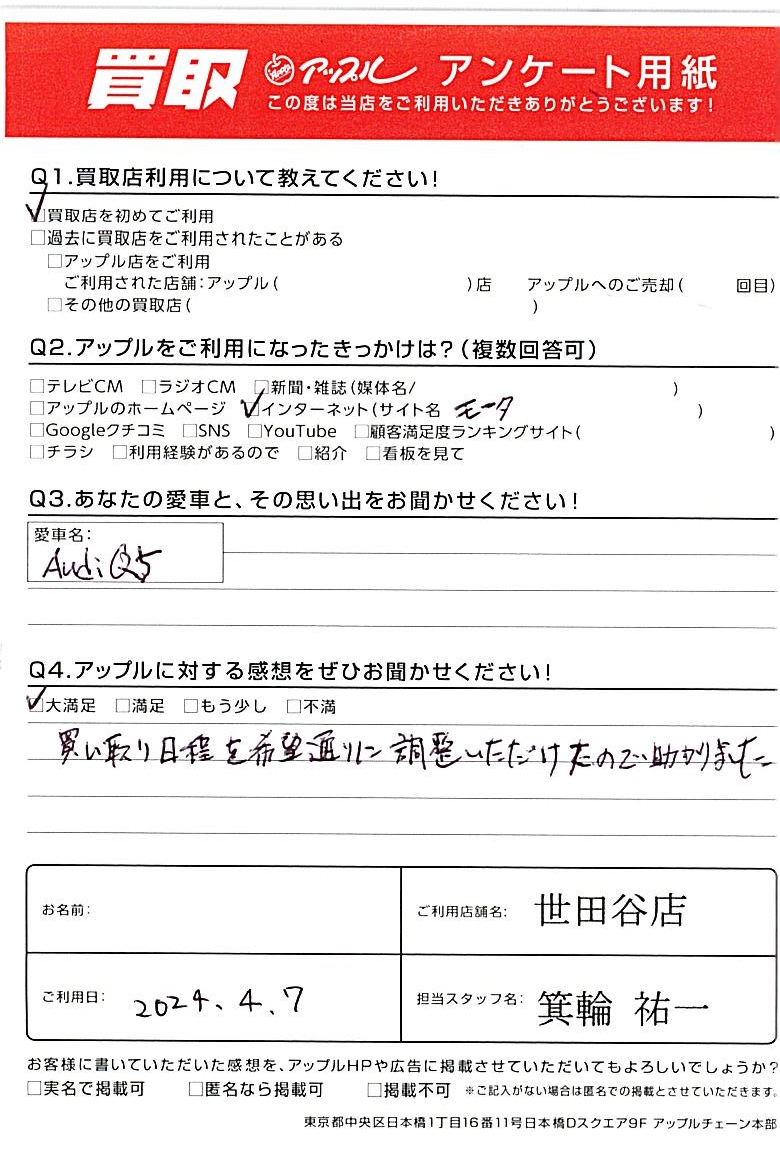 買取 アップル アンケート用紙
この度は当店をご利用いただきありがとうございます!
Q1.買取店利用について教えてください!
☑買取店を初めてご利用
□過去に買取店をご利用されたことがある
□アップル店をご利用
ご利用された店舗:アップル( )店 アップルへのご売却( 回目)
□その他の買取店( )
Q2.アップルをご利用になったきっかけは?(複数回答可)
□テレビCM □ラジオCM □新聞・雑誌(媒体名/ )
□アップルのホームページ ☑インターネット(サイト名 モータ )
□Googleクチコミ □SNS □YouTube □顧客満足度ランキングサイト( )
□チラシ □利用経験があるので □紹介 □看板を見て
Q3.あなたの愛車と、その思い出をお聞かせください!
愛車名:
Audi Q5
Q4.アップルに対する感想をぜひお聞かせください!
☑大満足 □満足 □もう少し □不満
買い取り日程を希望通りに調整いただけたので助かりました
お名前: ご利用店舗名: 世田谷店
ご利用日: 2024.4.7 担当スタッフ名: 箕輪 祐一
お客様に書いていただいた感想を、アップルHPや広告に掲載させていただいてもよろしいでしょうか?
□実名で掲載可 □匿名なら掲載可 □掲載不可 ※ご記入がない場合は匿名での掲載とさせていただきます。
東京都中央区日本橋1丁目16番11号日本橋Dスクエア9F アップルチェーン本部